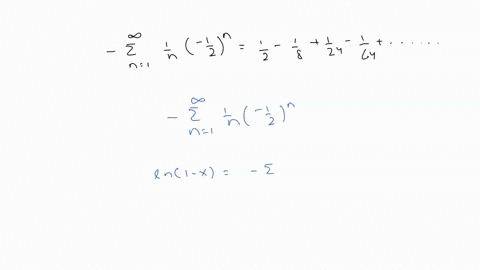 - ∞ Σ n=1 1/n (-1/2)^n = 1/2 - 1/8 + 1/24 - 1/64 + ......
- ∞ Σ n=1 1/n (-1/2)^n
ln(1-x) = - Σ